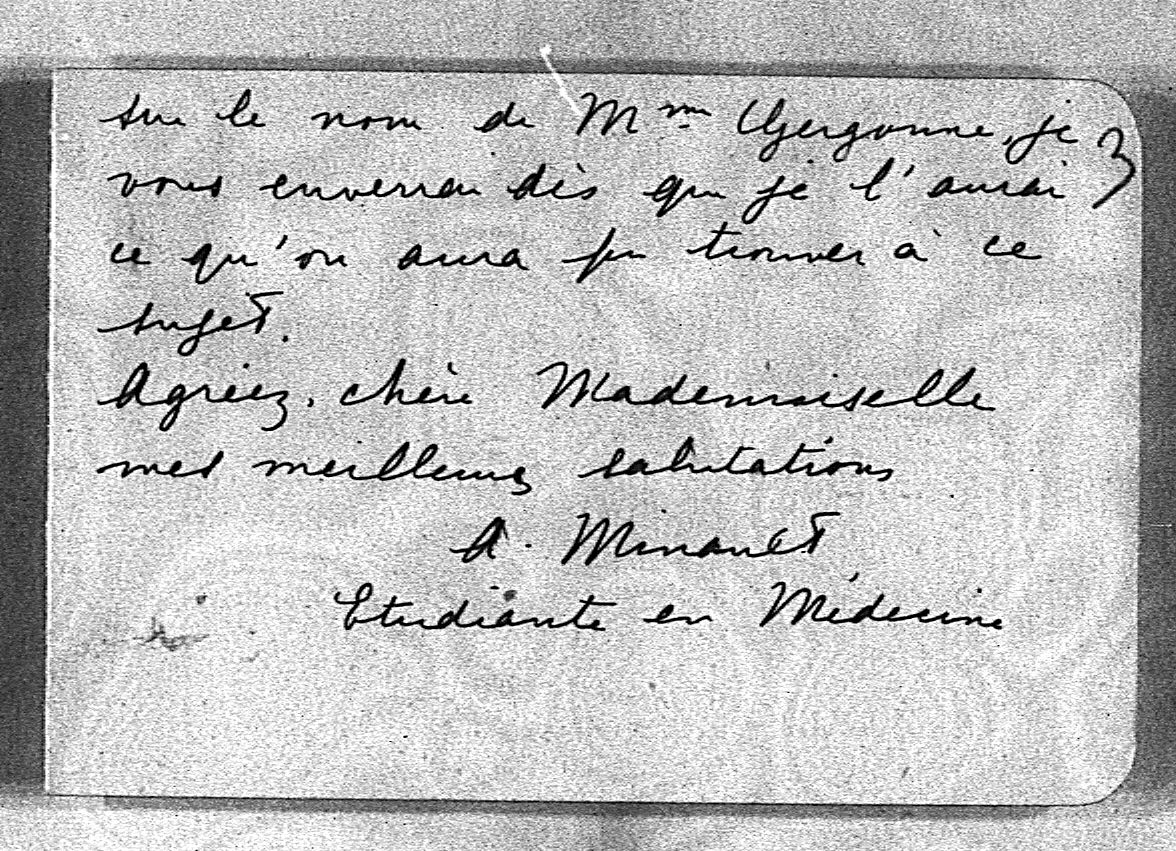 sur le nom de Mme Gergonne, je
vous enverrai dès que je l'aurai
ce qu'on aura pu trouver à ce
sujet.
Agréez, chère Mademoiselle
mes meilleures salutations
A. Minault
Etudiante en Médecine
3